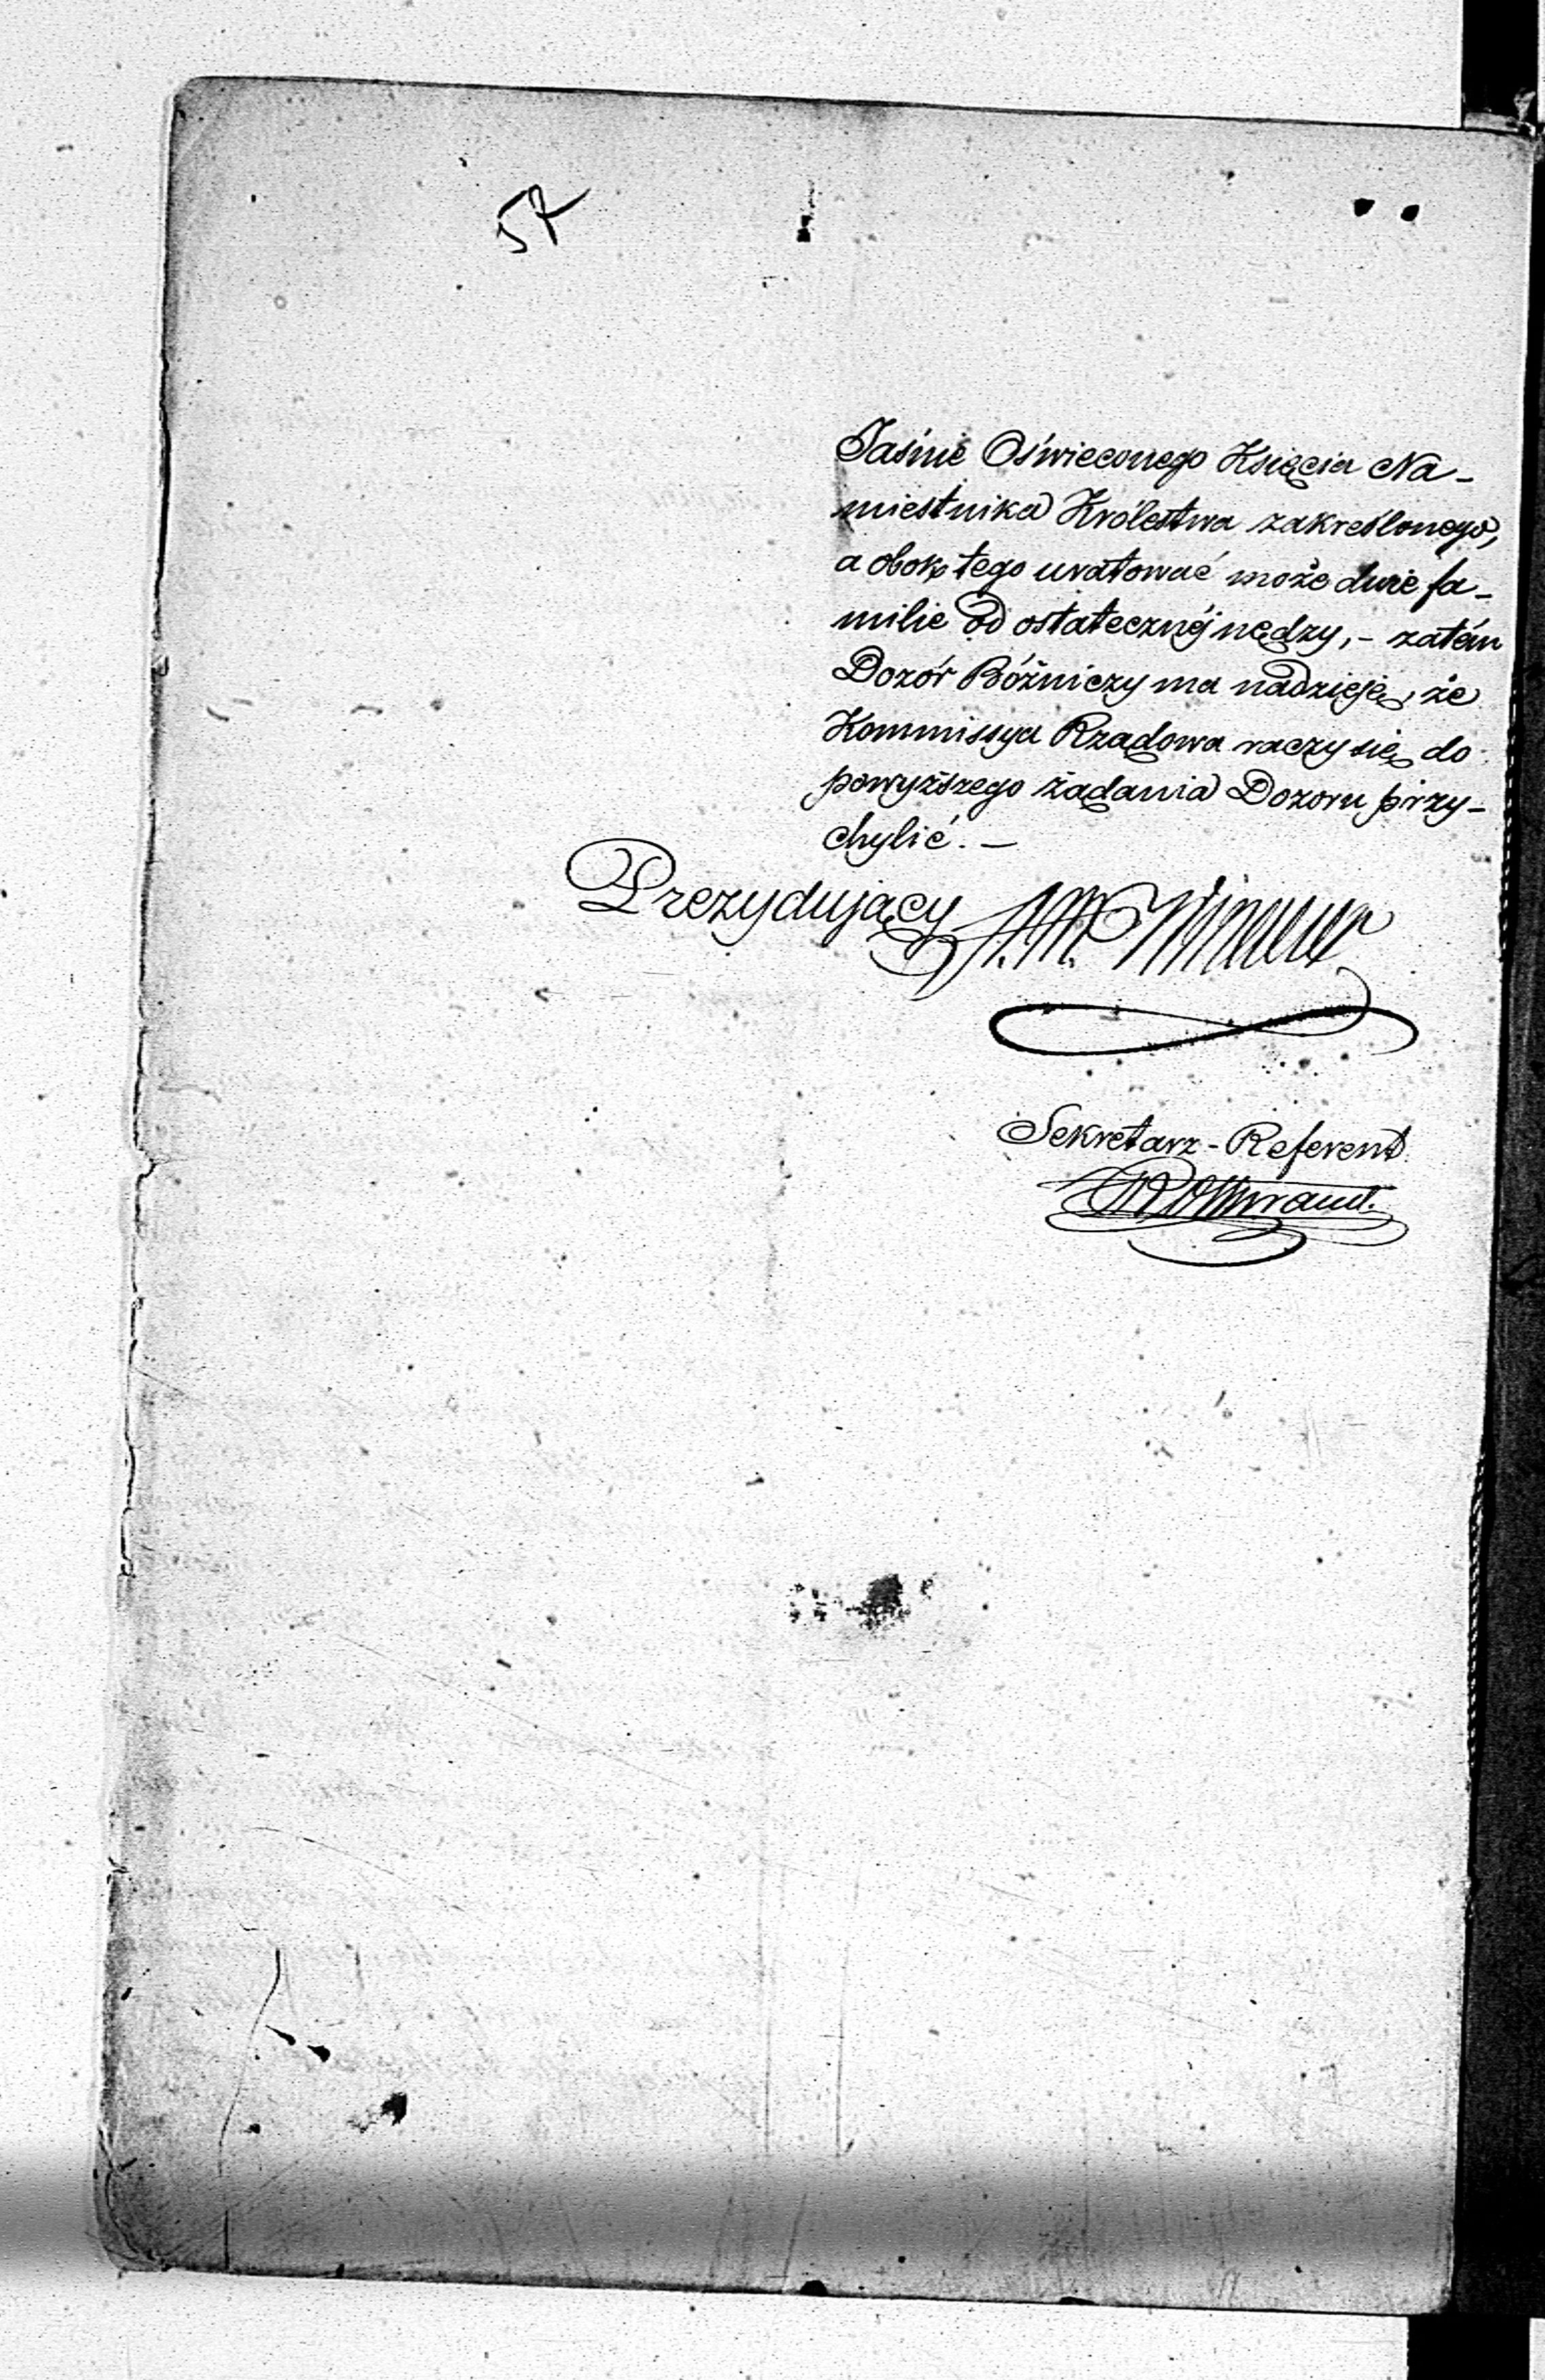 57
Jaśnie Oświeconego Księcia Na-
miestnika Królestwa zakreślonego,
a obok tego uratować może dwie fa-
milie od ostatecznéj nędzy, - zatém
Dozór Bóźniczy ma nadzieję, że
Kommissya Rządowa raczy się do
powyższego żądania Dozoru przy-
chylić. -
Prezydujący
Sekretarz - Referent